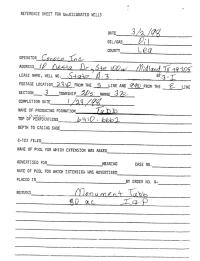 REFERENCE SHEET FOR UNDESIGNATED WELLS
DATE 3/2/98
OIL/GAS Oil
COUNTY Lea
OPERATOR Conoco Inc
ADDRESS 10 Desta Dr, Ste 100W Midland Tx 79705
LEASE NAME, WELL NO. State A-3 #3-I
FOOTAGE LOCATION 2310 FROM THE S LINE AND 990 FROM THE E LINE
SECTION 3 TOWNSHIP RANGE
COMPLETION DATE 1/29/98
NAME OF PRODUCING FORMATION Tubb
TOP OF PERFORATIONS 6410-6662
DEPTH TO CASING SHOE
C-123 FILED
NAME OF POOL FOR WHICH EXTENSION WAS ASKED
ADVERTISED FOR HEARING CASE NO.
NAME OF POOL FOR WHICH EXTENSION WAS ADVERTISED
PLACED IN BY ORDER NO. R-
REMARKS Monument Tubb
80 ac I & P